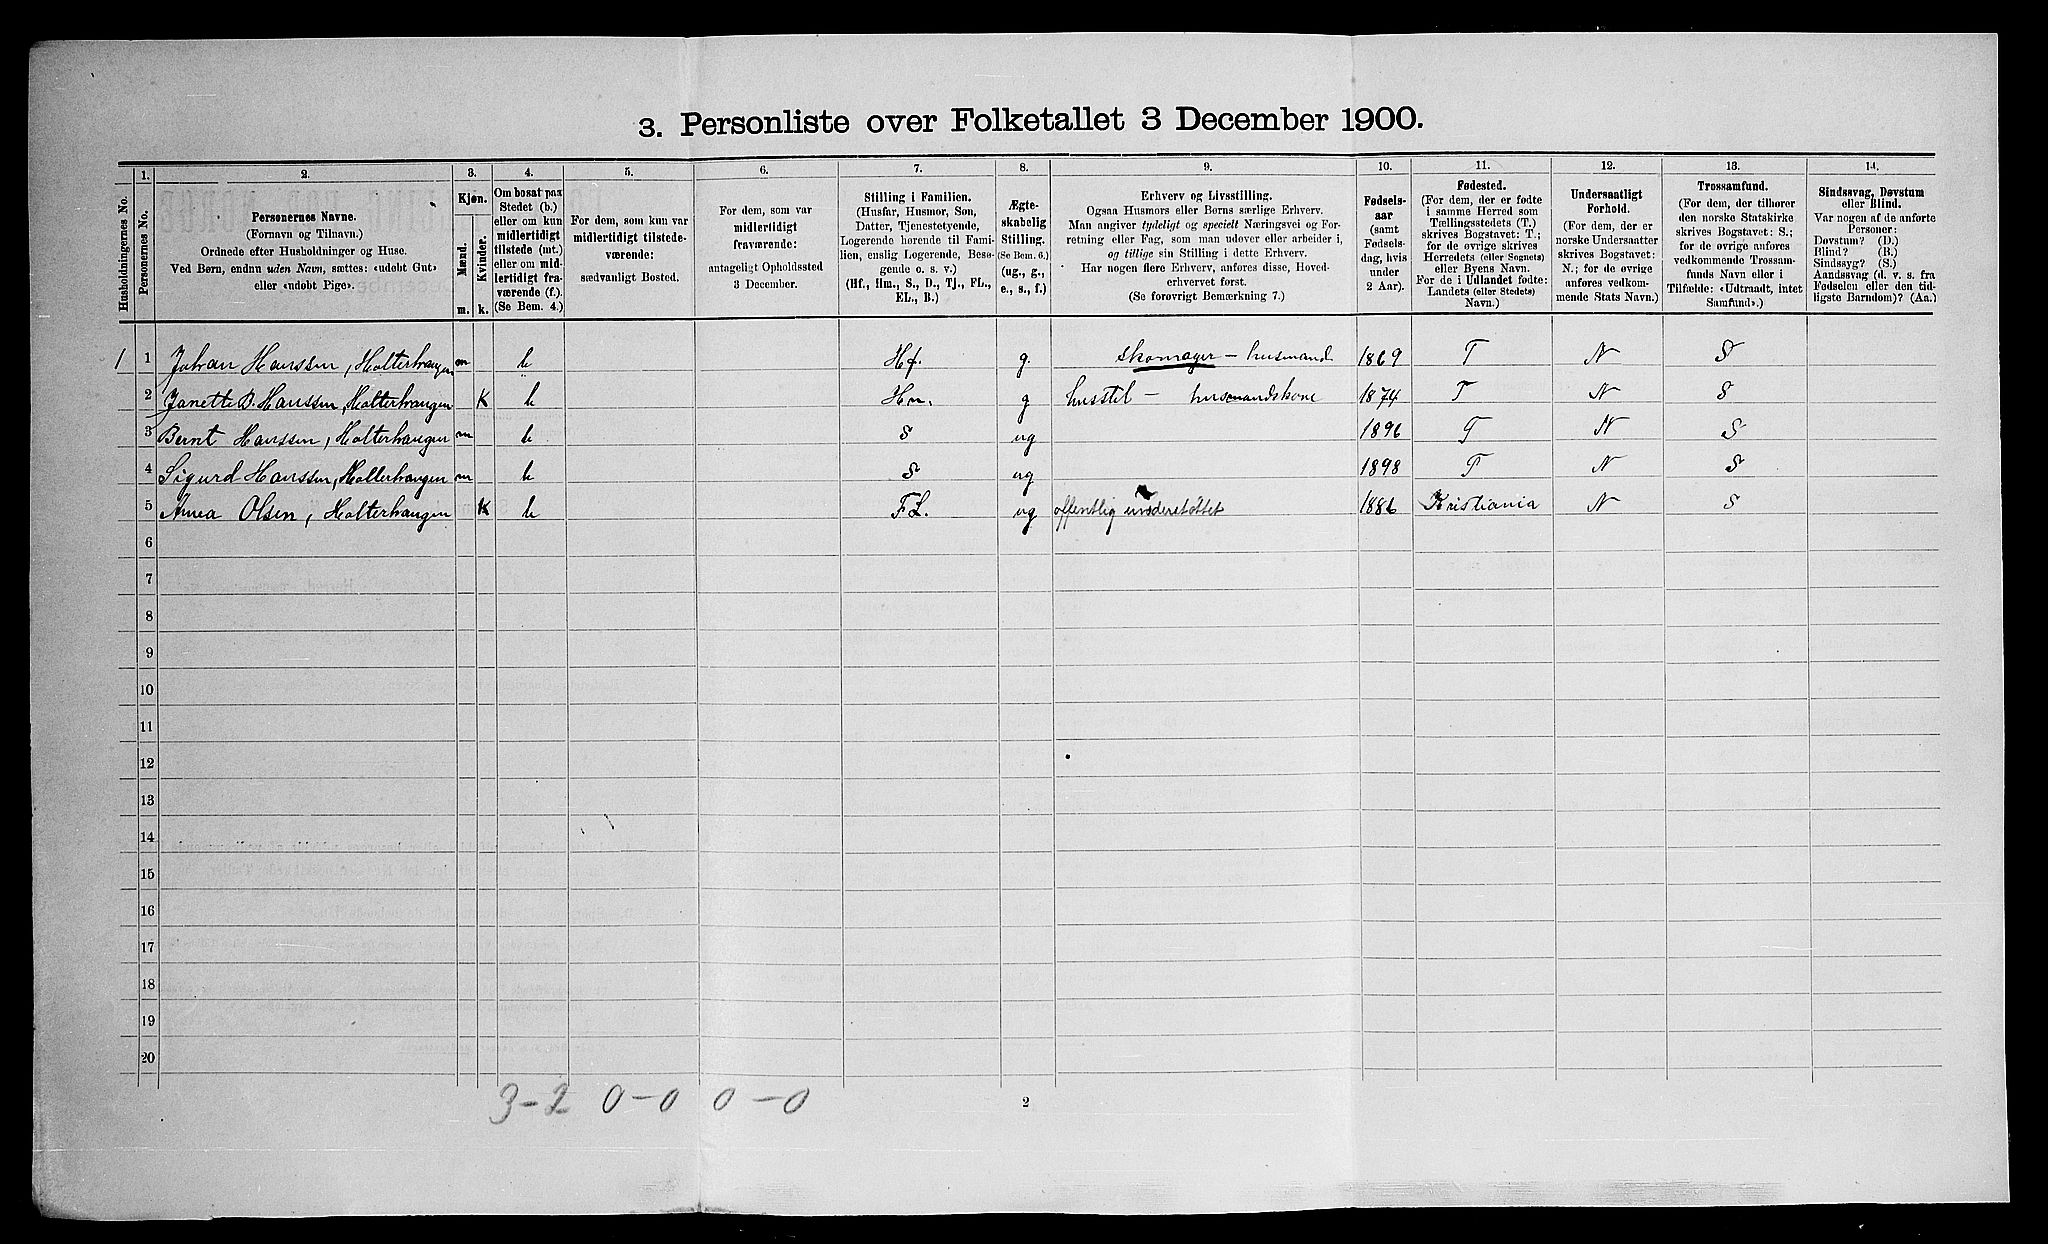 3. Personliste over Folketallet 3 December 1900.
Husholdningernes No.
1.
Personernes No.
2.
Personernes Navne.
(Fornavn og Tilnavn.)
Ordnede efter Husholdninger og Huse.
Ved Børn, endnu uden Navn, sættes: «udøbt Gut»
eller «udøbt Pige».
3.
Kjøn.
Mænd.
m.
Kvinder.
k.
4.
Om bosat paa
Stedet (b.)
eller om kun
midlertidigt
tilstede (mt.)
eller om mid-
lertidigt fra-
værende (f.)
(Se Bem. 4.)
5.
For dem, som kun var
midlertidigt tilstede-
værende:
sædvanligt Bosted.
6.
For dem, som var
midlertidigt
fraværende:
antageligt Opholdssted
3 December.
7.
Stilling i Familien.
(Husfar, Husmor, Søn,
Datter, Tjenestetyende,
Logerende hørende til Fami-
lien, enslig Logerende, Besø-
gende o. s. v.)
(Hf., Hm., S., D., Tj., FL.,
EL., B.)
8.
Ægte-
skabelig
Stilling.
(Se Bem. 6.)
(ug., g.,
e., s., f.)
9.
Erhverv og Livsstilling.
Ogsaa Husmors eller Børns særlige Erhverv.
Man angiver tydeligt og specielt Næringsvei og For-
retning eller Fag, som man udøver eller arbeider i,
og tillige sin Stilling i dette Erhverv.
Har nogen flere Erhverv, anføres disse, Hoved-
erhvervet først.
(Se forøvrigt Bemærkning 7.)
10.
Fødsels-
aar
(samt
Fødsels-
dag, hvis
under
2 Aar).
11.
Fødested.
(For dem, der er fødte
i samme Herred som
Tællingsstedets (T.)
skrives Bogstavet: T.;
for de øvrige skrives
Herredets (eller Sognets)
eller Byens Navn.
For de i Udlandet fødte:
Landets (eller Stedets)
Navn.)
12.
Undersaatligt
Forhold.
(For dem, der er
norske Undersaatter
skrives Bogstavet:
N.; for de øvrige
anføres vedkom-
mende Stats Navn.)
13.
Trossamfund.
(For dem, der tilhører
den norske Statskirke
skrives Bogstavet: S.;
for de øvrige anføres
vedkommende Trossam-
funds Navn eller i
Tilfælde: «Udtraadt, intet
Samfund».)
14.
Sindssvag, Døvstum
eller Blind.
Var nogen af de anførte
Personer:
Døvstum? (D.)
Blind? (B.)
Sindssyg? (S.)
Aandssvag (d. v. s. fra
Fødselen eller den tid-
ligste Barndom)? (Aa.)
1 1 Johan Hanssen, Holterhaugen m b Hf. g. skomager – husmand 1869 T N S
2 Janette B. Hanssen, Holterhaugen K b Hm. g husstel – husmandskone 1874 T N S
3 Bernt Hanssen, Holterhaugen m b S ug 1896 T N S
4 Sigurd Hanssen, Holterhaugen m b S ug 1898 T N S
5 Anna Olsen, Holterhaugen K b FL. ug offentlig understøttet 1886 Kristiania N S
6
7
8
9
10
11
12
13
14
15
16
17
18
19
20
3-2 0-0 0-0
2